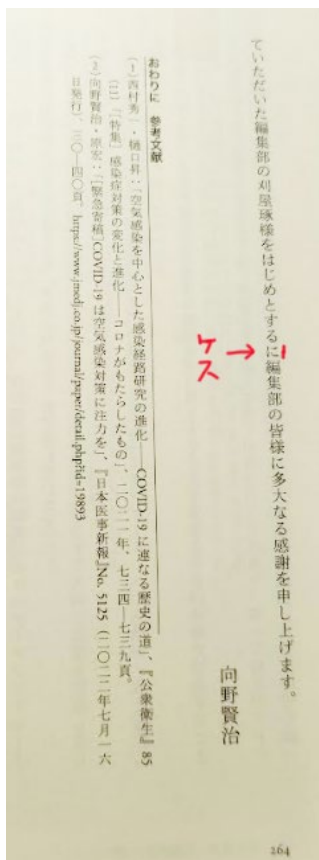 ていただいた編集部の刈屋琢様をはじめとするに編集部の皆様に多大なる感謝を申し上げます。
ケス
向野賢治
おわりに 参考文献
(1)西村秀一・樋口昇:「空気感染を中心とした感染経路研究の進化——COVID-19に連なる歴史の道」、『公衆衛生』85
(11)「[特集]感染症対策の変化と進化——コロナがもたらしたもの」、二〇二一年、七三四—七三九頁。
(2)向野賢治・原宏:「[緊急寄稿]COVID-19は空気感染対策に注力を」、『日本医事新報』No. 5125(二〇二二年七月一六
日発行)、三〇—四〇頁、https://www.jmedj.co.jp/journal/paper/detail.php?id=19893
264